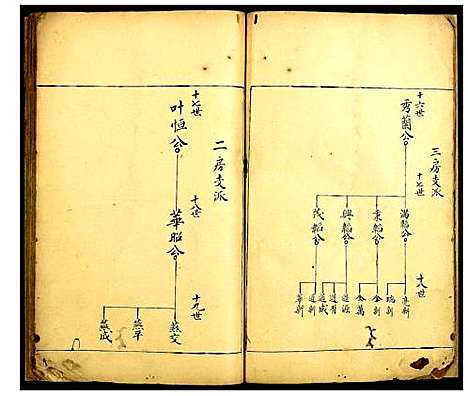 三房支派
十六世
秀蘭公
十七世
滿韜公
秉韜公
興韜公
茂韜公
十八世
亮新
瑞新
金新
金萬
道源
道督
道成
道新
華新
二房支派
十七世
叶恒公
十八世
華昭公
十九世
燕文
燕平
燕成